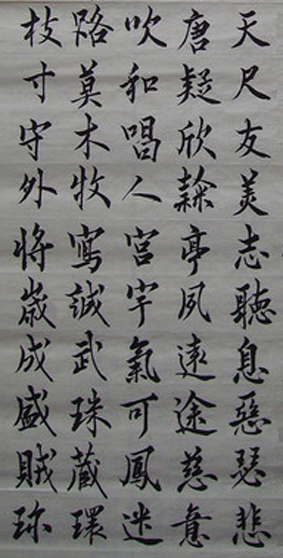 天尺友美志聽息惡瑟悲
唐疑欣隸亭夙遠途慈意
吹和唱人宮宇氣可鳳迷
路莫木牧寫誠武珠蔵環
枝寸守外将歳成盛賊珎